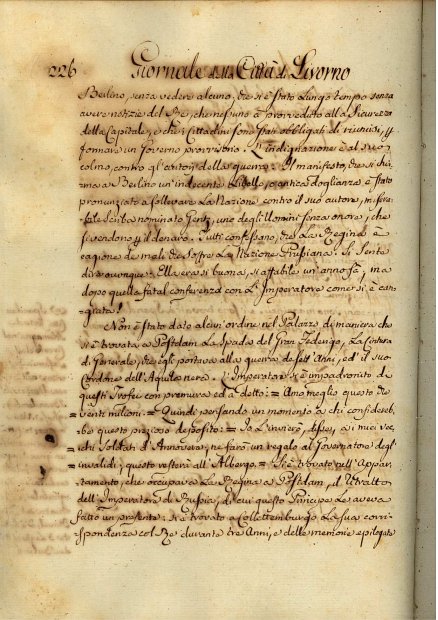 226 Giornale della Città di Livorno
Berlino, senza vedere alcuno; che si è stato lungo tempo senza
avere notizie del Re, che nessuno à provveduto alla sicurezza
della Capitale, e che i Cittadini sono stati obbligati di riunirsi, p
formare un Governo provvisorio. L'indignazione è al suo
colmo, contro gl'autori della guerra. Il manifesto, che si chi=
ma a Berlino un'indecente libello, o antica doglianza è stato
pronunziato a sollevare la Nazione contro il suo autore, misera=
bile scriba nominato Gentz, uno degli Uomini senza onore, che
si vendono p il denaro. Tutti confessano, che la Regina è
cagione de mali che soffre la Nazione Prussiana. Si sente
dire ovunque: Ella era sì buona, sì affabile un anno fà, ma
dopo quella fatal conferenza con l'Imperatore come si è can=
giata!
Non è stato dato alcun'ordine nel Palazzo di maniera che
si è trovata a Postdam la Spada del Gran Federigo, la Cintura
di Generale, che egli portava alla guerra de sett'Anni, ed il suo
Cordone dell'Aquila nera. L'Imperatore si è impadronito di
questi Trofei con premura ed à detto: = Amo meglio questo che
= venti milioni. = Quindi pensando un momento a chi confidereb=
be questo prezioso deposito: = Io l'invierò, disse, ai miei vec=
chi Soldati d'Annover; ne farò un regalo al Governatore degl'
invalidi; questo resterà all'Albergo. = Si è trovato nell'Appar=
tamento, che occupava la Regina a Postdam, il Ritratto
dell'Imperatore di Russia, di cui questo Principe le aveva
fatto un presente: si è trovato a Collettemburgo la sua corri=
spondenza col Re durante tre Anni, e delle memorie epilogate